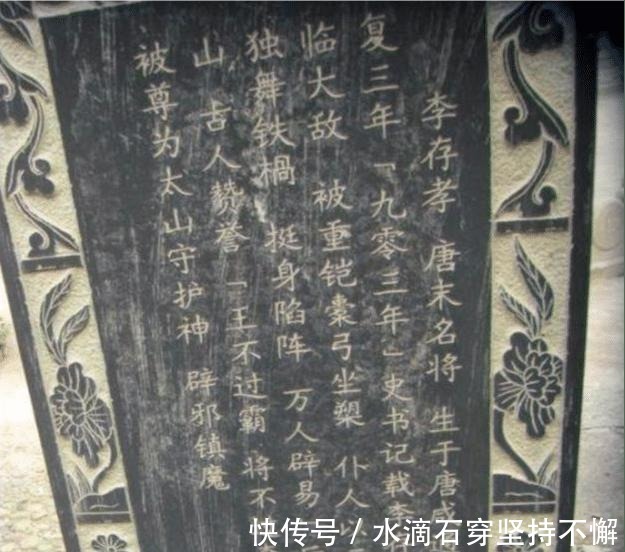 李存孝 唐末名将 生于唐咸
复三年「九零三年」史书记载李
临大敌 被重铠橐弓坐槊 仆人
独舞铁楇 挺身陷阵 万人辟易
山 古人赞誉「王不过霸 将不
被尊为太山守护神 辟邪镇魔
快传号 / 水滴石穿坚持不懈